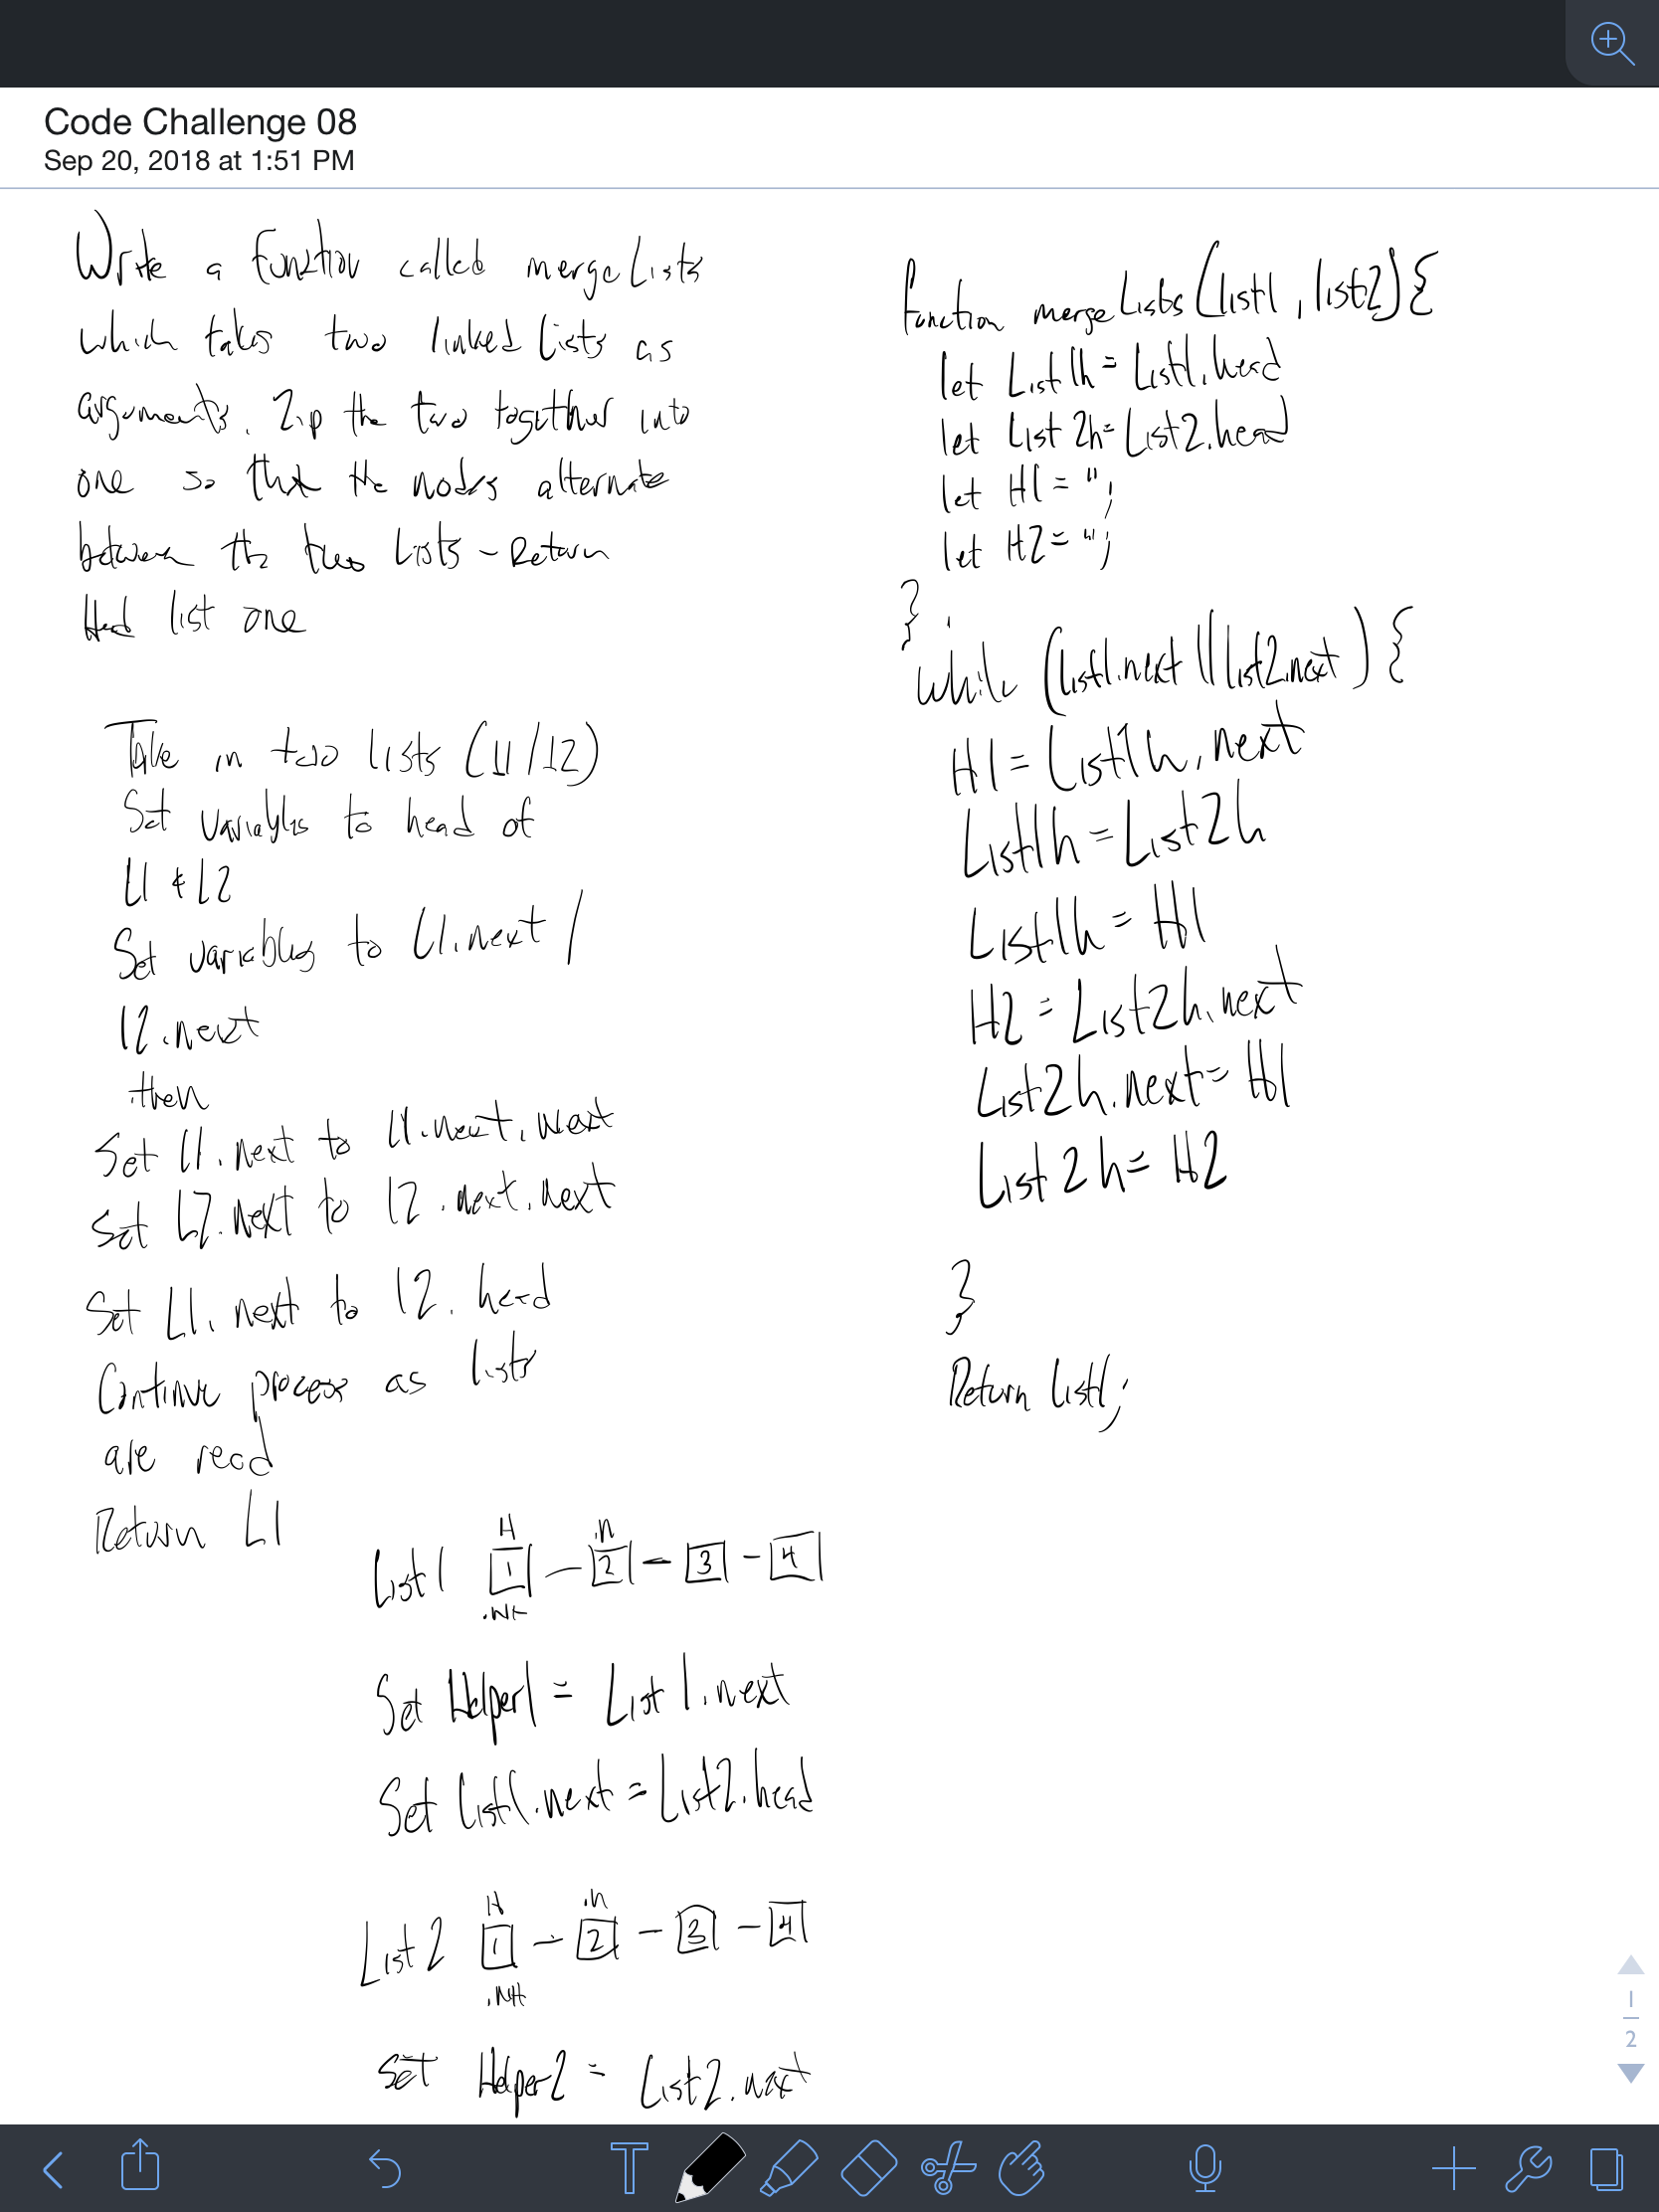 Code Challenge 08
Sep 20, 2018 at 1:51 PM
Write a function called mergeLists
which takes two linked lists as
arguments. Zip the two together into
one so that the nodes alternate
between the two Lists - Return
Head list one
Take in two lists (l1/l2)
Set variables to head of
L1 & L2
Set variables to l1.next /
l2.next
then
Set l1.next to l1.next.next
Set L2.next to l2.next.next
Set L1.next to l2.head
Continue process as lists
are read
Return L1
List1 H 1 - .n 2 - 3 - 4
.Nt
Set Helper1 = List1.next
Set list1.next = List2.head
List2 H 1 - .n 2 - 3 - 4
Set Helper2 = List2.next
function mergeLists(list1, list2){
let List1h = List1.head
let List2h = List2.head
let H1 = '';
let H2 = '';
}
while (list1.next || list2.next) {
H1 = List1h.next
List1h = List2h
List1h = H1
H2 = List2h.next
List2h.next = H1
List2h = H2
}
Return list1;
1
2
T